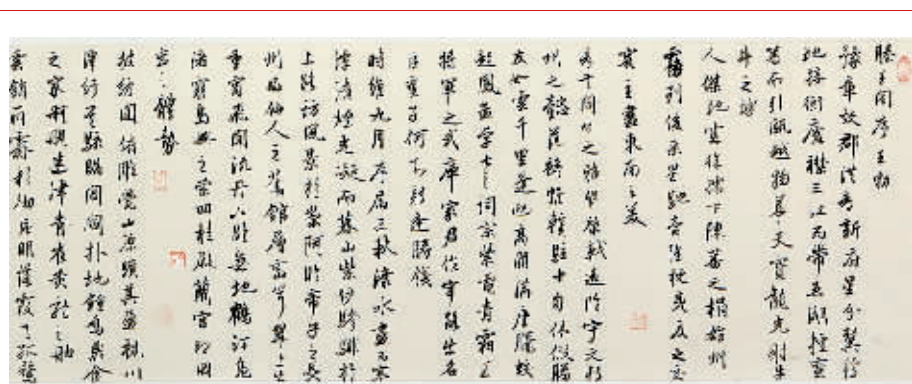 滕王閣序 王勃
豫章故郡洪都新府星分翼軫
地接衡廬襟三江而帶五湖控蠻
荊而引甌越物華天寶龍光射牛
斗之墟
人傑地靈徐孺下陳蕃之榻雄州
霧列俊采星馳臺隍枕夷夏之交
賓主盡東南之美
閻公之雅望棨戟遙臨宇文新
州之懿範襜帷暫駐十旬休假勝
友如雲千里逢迎高朋滿座騰蛟
起鳳孟學士之詞宗紫電青霜王
將軍之武庫家君作宰路出名
區童子何知躬逢勝餞
時維九月序屬三秋潦水盡而寒
潭清煙光凝而暮山紫儼驂騑於
上路訪風景於崇阿臨帝子之長
州得仙人之舊館層巒聳翠上出
重霄飛閣流丹下臨無地鶴汀鳧
渚窮島嶼之縈回桂殿蘭宮即岡
巒之體勢
披繡闥俯雕甍山原曠其盈視川
澤紆其駭矚閭閻撲地鐘鳴鼎食
之家舸艦迷津青雀黃龍之舳
雲銷雨霽彩徹區明落霞與孤鶩